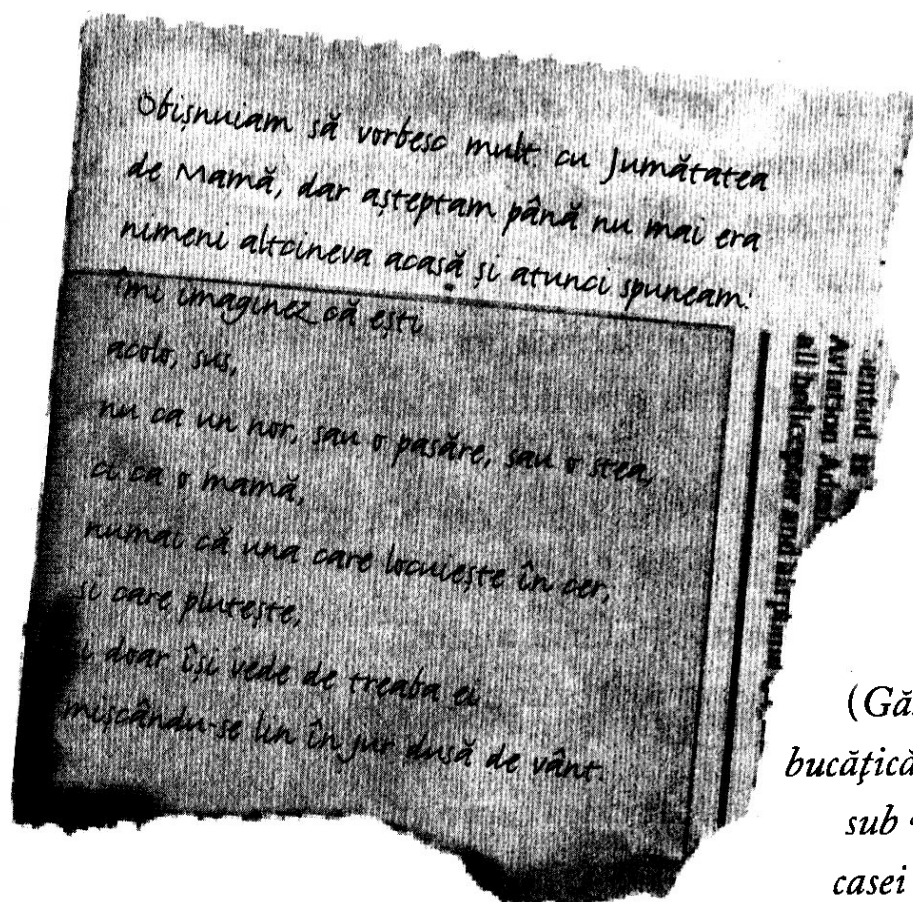 Obișnuiam să vorbesc mult cu Jumătatea
de Mamă, dar așteptam până nu mai era
nimeni altcineva acasă și atunci spuneam:
Îmi imaginez că ești
acolo, sus,
nu ca un nor, sau o pasăre, sau o stea,
ci ca o mamă,
numai că una care locuiește în cer,
și care plutește,
și doar își vede de treaba ei
mișcându-se lin în jur dusă de vânt.
Aviation
all helicopter and airplane
bucățică
sub
casei